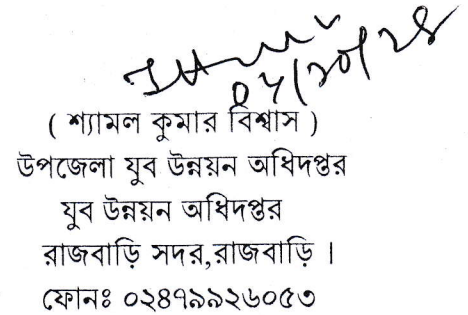 ০৮/১০/২৪
( শ্যামল কুমার বিশ্বাস )
উপজেলা যুব উন্নয়ন অধিদপ্তর
যুব উন্নয়ন অধিদপ্তর
রাজবাড়ি সদর,রাজবাড়ি ।
ফোনঃ ০২৪৭৯৯২৬০৫৩